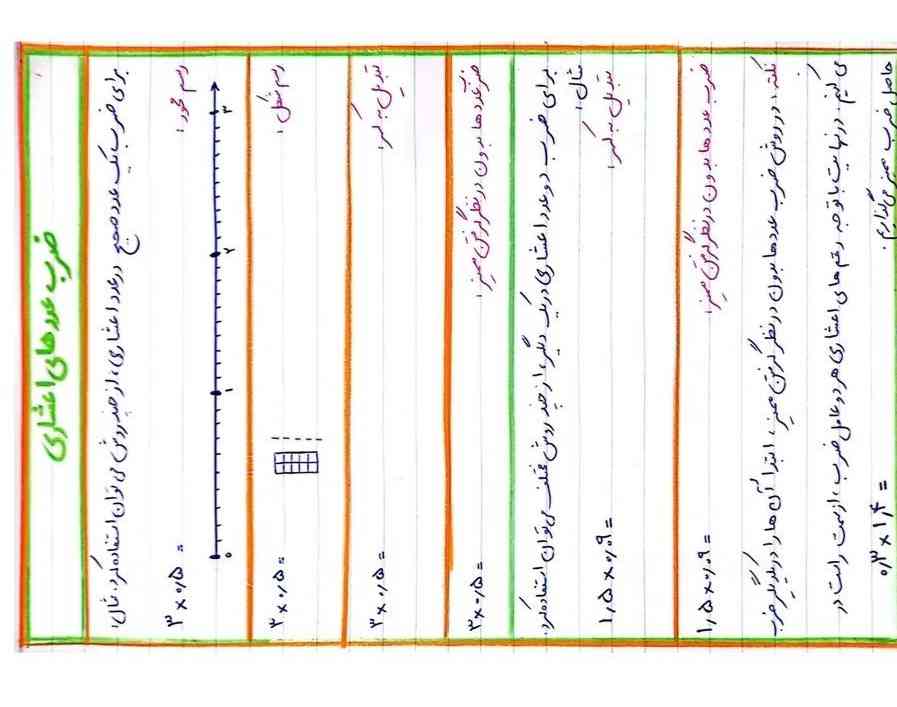 ضرب عددهای اعشاری
برای ضرب یک عدد صحیح در عدد اعشاری، از چند روش می توان استفاده کرد. مثال:
رسم محور:
۳ × ۰٫۵ =
۰ ۱ ۲ ۳
رسم شکل:
۳ × ۰٫۵ =
تبدیل به کسر:
۳ × ۰٫۵ =
ضرب عددها بدون در نظر گرفتن ممیز:
۳ × ۰٫۵ =
برای ضرب دو عدد اعشاری در یک دیگر، از چند روش مختلف می توان استفاده کرد.
مثال:
تبدیل به کسر:
۱٫۵ × ۰٫۰۹ =
ضرب عددها بدون در نظر گرفتن ممیز:
۱٫۵ × ۰٫۰۹ =
نکته: در روش ضرب عددها بدون در نظر گرفتن ممیز، ابتدا آن ها را در یکدیگر ضرب
می کنیم. در نهایت با توجه رقم های اعشاری هر دو عامل ضرب، از سمت راست در
حاصل ضرب ممیز می گذاریم.
۰٫۳ × ۱٫۴ =